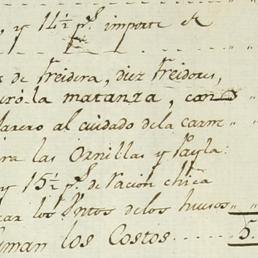 , y 14½ p.s importe de
s de freidera, diez freidores,
uró la matanza, con
larero al cuidado de la carne
ra las Ornillas y Payla:
y 15½ p.s de racion chica
car los Untos de los huesos
uman los Costos ...... 5.